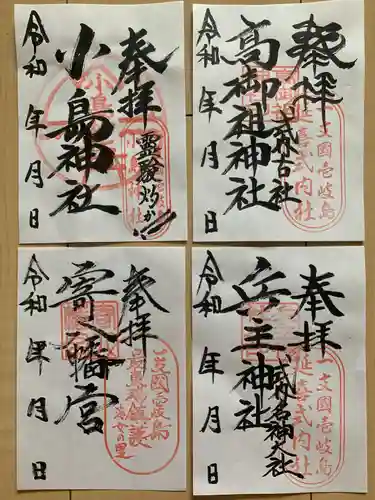 奉拝
小島神社
令和　年　月　日
小島神社
奉拝
式外古社
高御祖神社
令和　年　月　日
一支國壱岐島
延喜式内社
奉拝
寄八幡宮
令和　年　月　日
一支國壱岐島
海女の里
奉拝
式内名神大社
兵主神社
令和　年　月　日
一支國壱岐島
延喜式内社